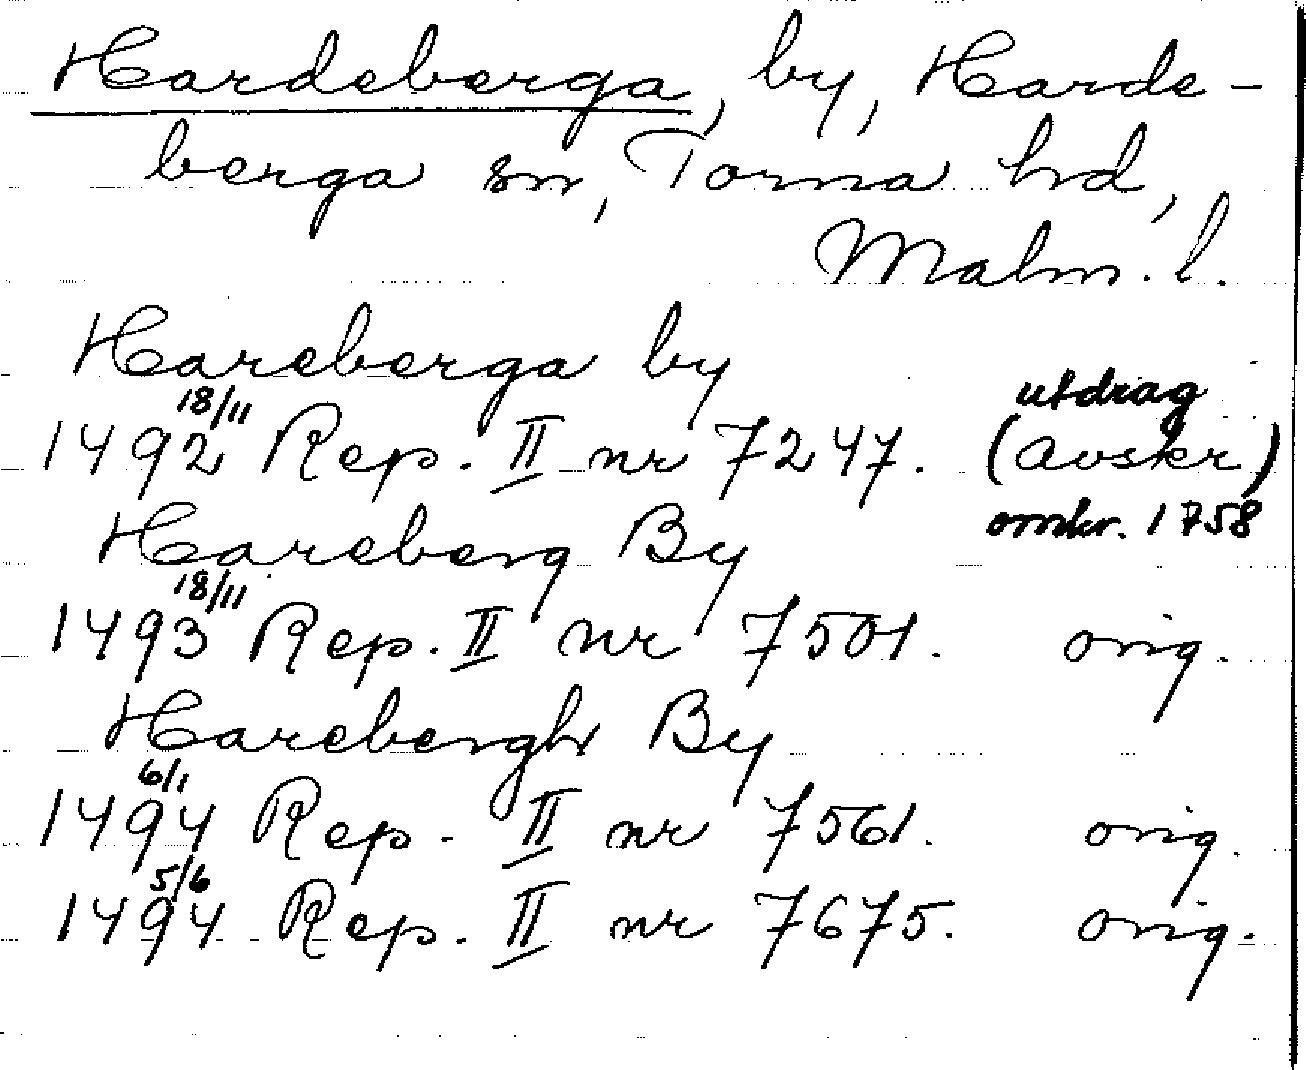 Hardeberga, by, Harde-
berga sn, Torna hd,
Malm. l.
Hareberga by
utdrag
18/11
1492 Rep. II nr 7247. (avskr)
omkr. 1758
Hareberg By
18/11
1493 Rep. II nr 7501. orig.
Harebergh By
6/1
1494 Rep. II nr 7561. orig.
5/6
1494 Rep. II nr 7675. orig.